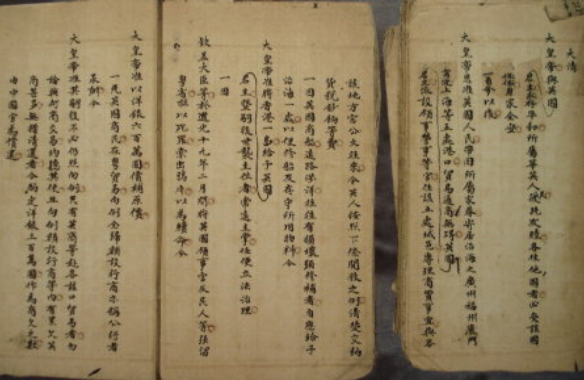 大清
大皇帝與英國
君主永存平和所屬華英人民彼此友睦各住他國者必受該國
保佑身家全安
一自今以後
大皇帝恩准英國人民帶同所屬家眷寄居沿海之廣州福州廈門
寧波上海等五處港口貿易通商無礙英國
君主派設領事管事等官住該五處城邑專理商賈事宜與各
該地方官公文往來令英人按照下條開敘之例清楚交納
貨稅鈔餉等費
一因英國商船遠路涉洋往往有損壞須修補者自應給予
沿海一處以便修船及存守所用物料今
大皇帝准將香港一島給予英國
君主暨嗣後世襲主位者常遠主掌任便立法治理
一因
欽差大臣等於道光十九年二月間將英國領事官及民人等強留
粵省嚇以死罪索出鴉片以為贖命今
大皇帝准以洋銀六百萬圓償補原價
一凡英國商民在粵貿易向例全歸額設行商亦稱公行者
承辦今
大皇帝准其嗣後不必仍照向例只有英商等赴各該口貿易者勿
論與何商交易均聽其便且向例額設行商等內有累欠英
商甚多無措清還者今酌定洋銀三百萬圓作為商欠之數
由中國官為償還